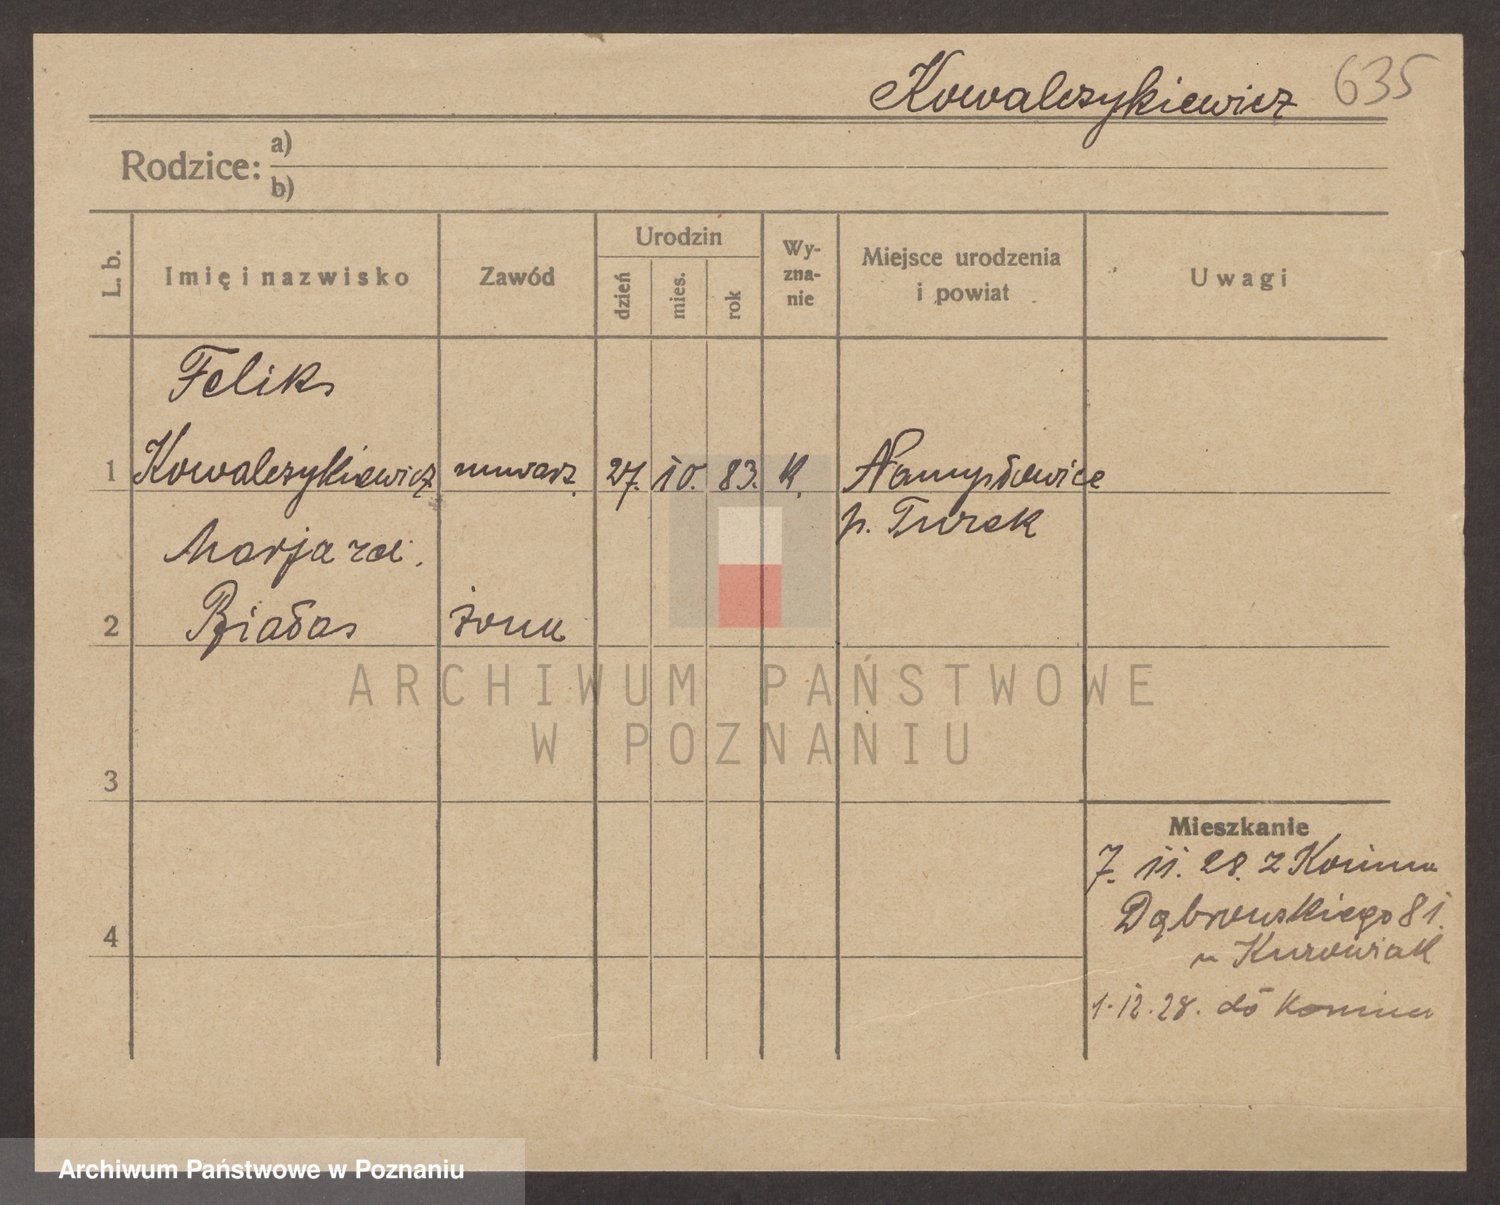 Kowalczykiewicz 635
Rodzice: a)
b)
L. b. Imię i nazwisko Zawód Urodzin dzień mies. rok Wyzna-nie Miejsce urodzenia i powiat Uwagi
Feliks
1 Kowalczykiewicz murarz. 27. 10. 83. K. Namysłowice
p. Turek
Marja roc.
2 Białas żona
ARCHIWUM PAŃSTWOWE
W POZNANIU
3
Mieszkanie
7. 11. 28. z Konina
Dąbrowskiego 81.
4
u Kurowiak
1. 12. 28. do Konina
Archiwum Państwowe w Poznaniu